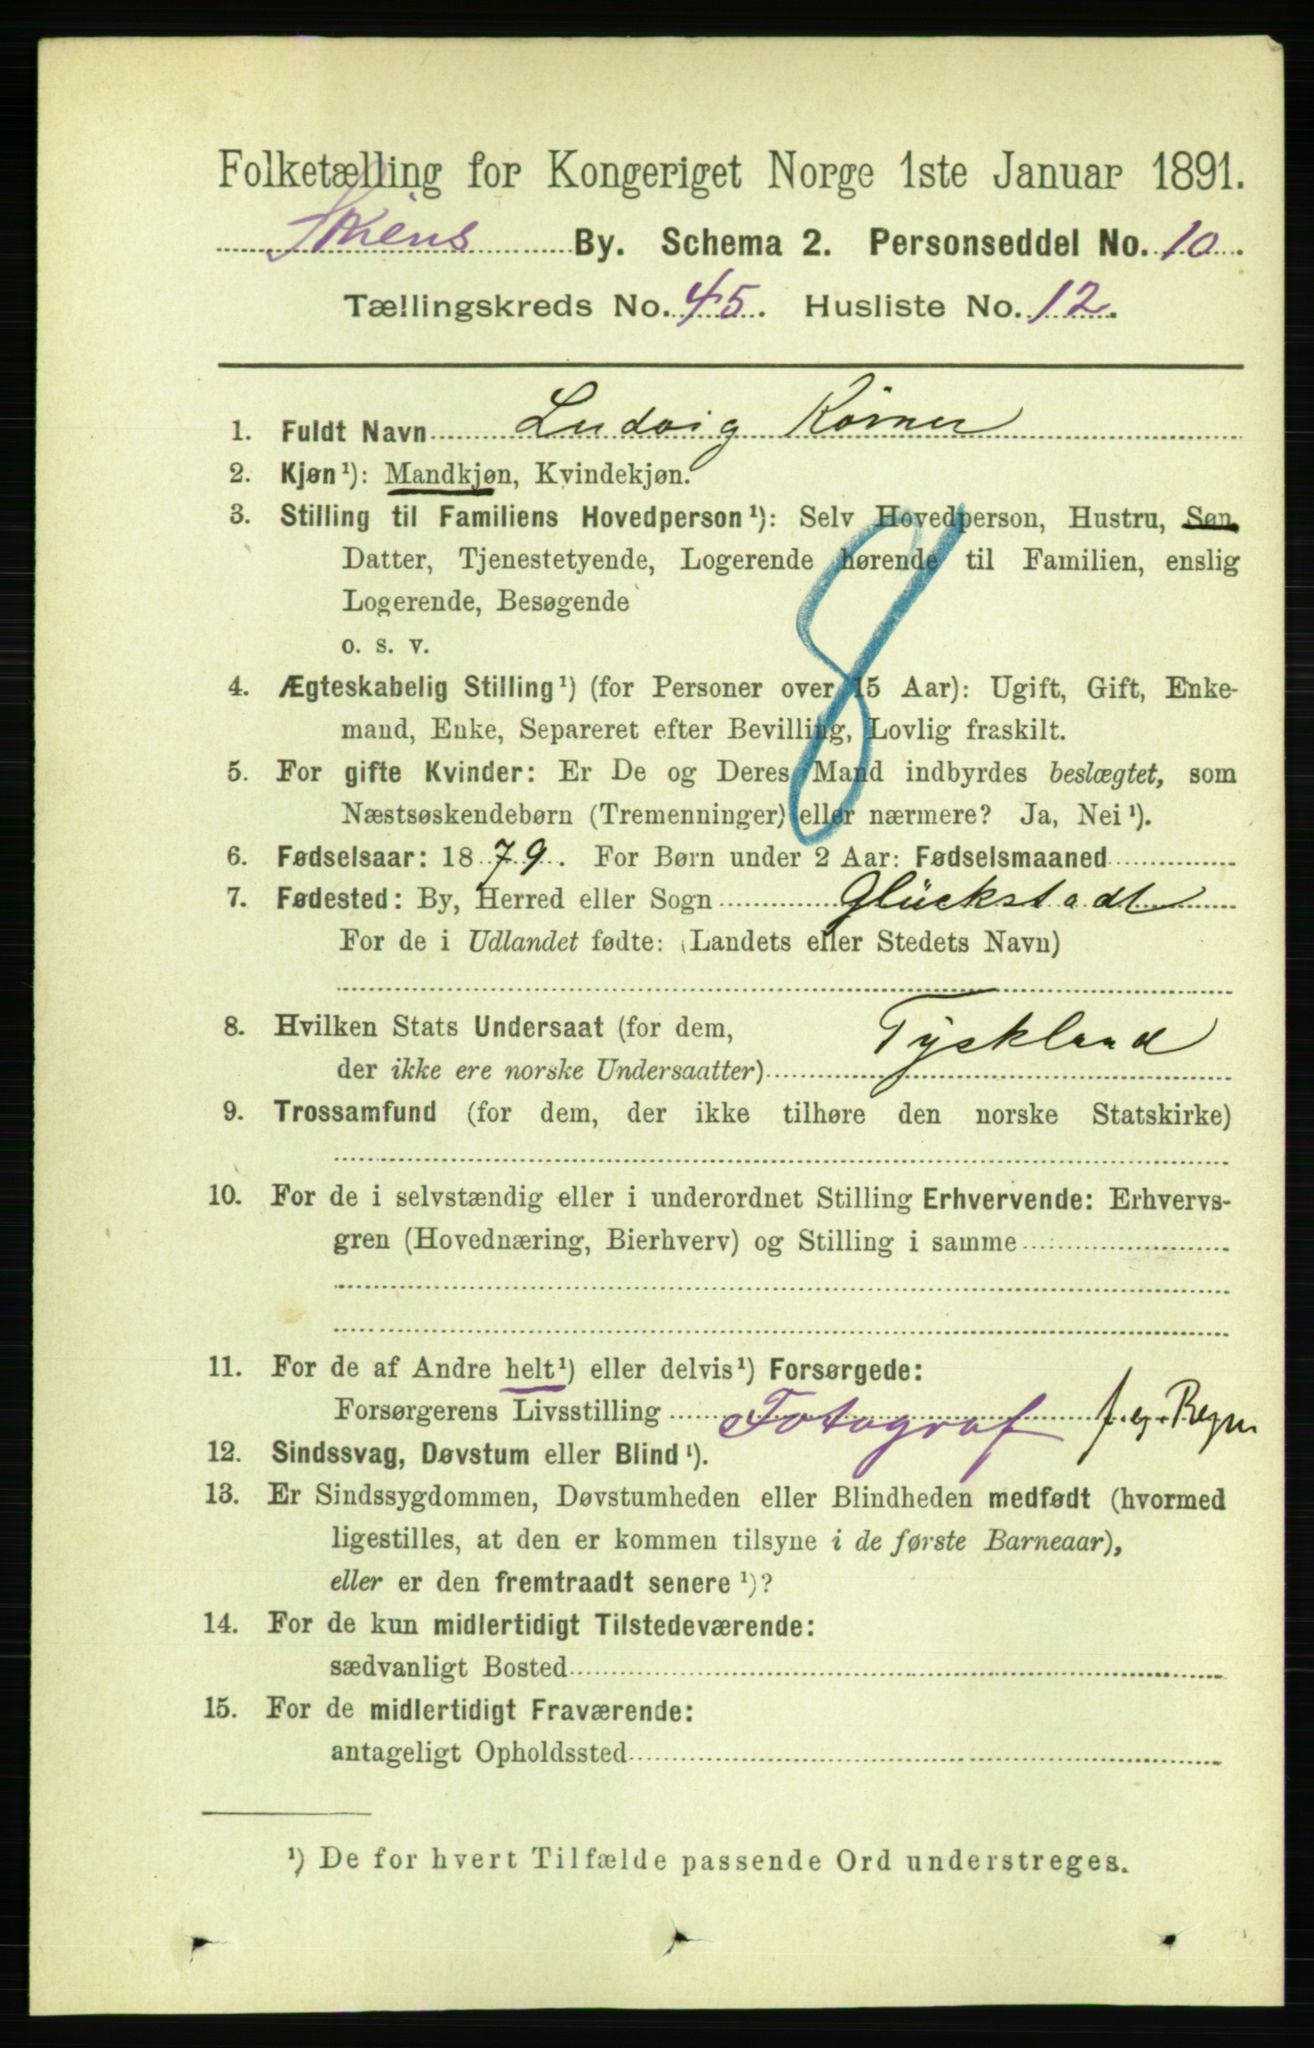 Folketælling for Kongeriget Norge 1ste Januar 1891.
Skiens By. Schema 2. Personseddel No. 10.
Tællingskreds No. 45. Husliste No. 12.
1. Fuldt Navn Ludvig Körner
2. Kjøn¹): Mandkjøn, Kvindekjøn.
3. Stilling til Familiens Hovedperson¹): Selv Hovedperson, Hustru, Søn,
Datter, Tjenestetyende, Logerende hørende til Familien, enslig
Logerende, Besøgende
o. s. v.
8
4. Ægteskabelig Stilling¹) (for Personer over 15 Aar): Ugift, Gift, Enke-
mand, Enke, Separeret efter Bevilling, Lovlig fraskilt.
5. For gifte Kvinder: Er De og Deres Mand indbyrdes beslægtet, som
Næstsøskendebørn (Tremenninger) eller nærmere? Ja, Nei¹).
6. Fødselsaar: 1879. For Børn under 2 Aar: Fødselsmaaned
7. Fødested: By, Herred eller Sogn Glückstadt
For de i Udlandet fødte: (Landets eller Stedets Navn)
8. Hvilken Stats Undersaat (for dem, Tyskland
der ikke ere norske Undersaatter)
9. Trossamfund (for dem, der ikke tilhøre den norske Statskirke)
10. For de i selvstændig eller i underordnet Stilling Erhvervende: Erhvervs-
gren (Hovednæring, Bierhverv) og Stilling i samme
11. For de af Andre helt¹) eller delvis¹) Forsørgede:
Forsørgerens Livsstilling Fotograf f. eg. Regn
12. Sindssvag, Døvstum eller Blind¹).
13. Er Sindssygdommen, Døvstumheden eller Blindheden medfødt (hvormed
ligestilles, at den er kommen tilsyne i de første Barneaar),
eller er den fremtraadt senere¹)?
14. For de kun midlertidigt Tilstedeværende:
sædvanligt Bosted
15. For de midlertidigt Fraværende:
antageligt Opholdssted
¹) De for hvert Tilfælde passende Ord understreges.